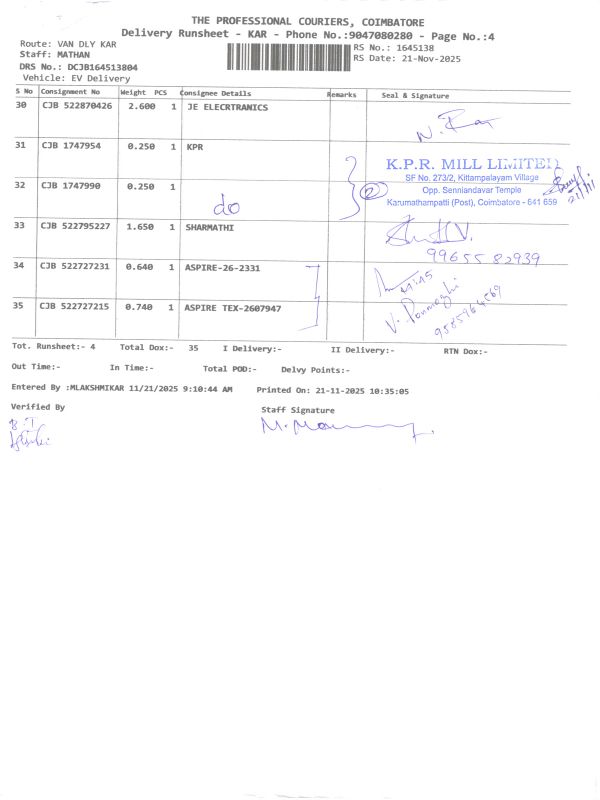 THE PROFESSIONAL COURIERS, COIMBATORE
Delivery Runsheet - KAR - Phone No.:9047080280 - Page No.:4
Route: VAN DLY KAR
Staff: MATHAN
DRS No.: DCJB164513804
Vehicle: EV Delivery
RS No.: 1645138
RS Date: 21-Nov-2025
S No Consignment No Weight PCS Consignee Details Remarks Seal & Signature
30 CJB 522870426 2.600 1 JE ELECRTRANICS
31 CJB 1747954 0.250 1 KPR
K.P.R. MILL LIMITED
SF No. 273/2, Kittampalayam Village
32 CJB 1747990 0.250 1 do 2
Opp. Senniandavar Temple
Karumathampatti (Post), Coimbatore - 641 659
33 CJB 522795227 1.650 1 SHARMATHI
99655 82939
34 CJB 522727231 0.640 1 ASPIRE-26-2331
35 CJB 522727215 0.740 1 ASPIRE TEX-2607947
9585964569
Tot. Runsheet:- 4 Total Dox:- 35 I Delivery:- II Delivery:- RTN Dox:-
Out Time:- In Time:- Total POD:- Delvy Points:-
Entered By :MLAKSHMIKAR 11/21/2025 9:10:44 AM Printed On: 21-11-2025 10:35:05
Verified By
Staff Signature